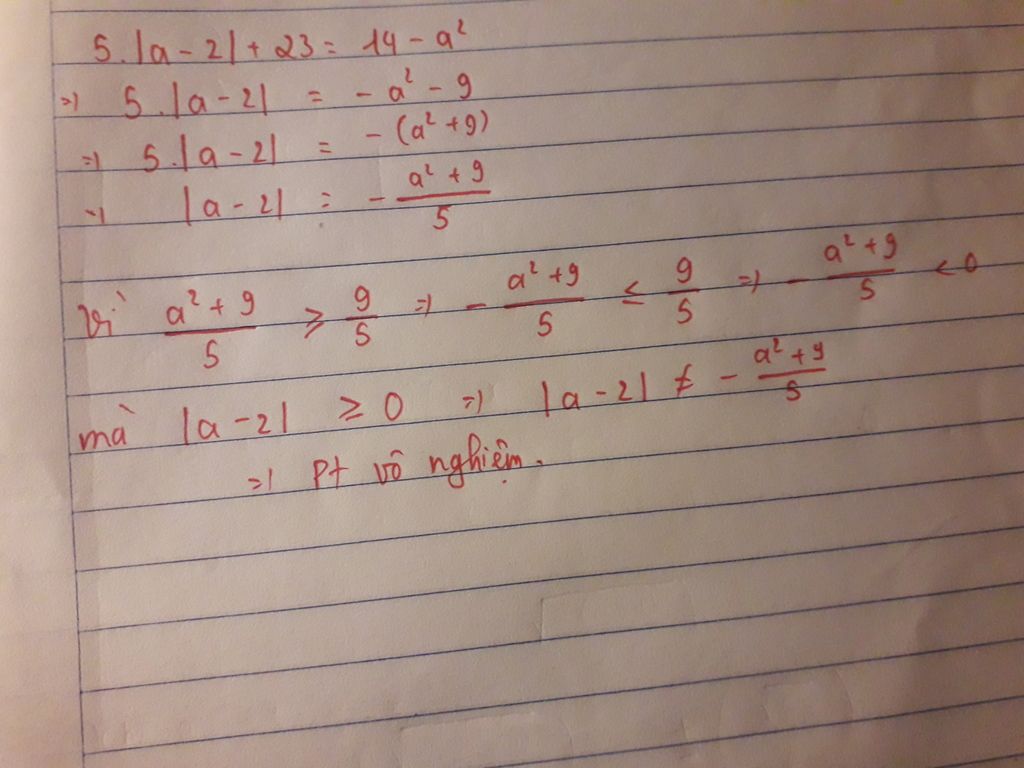 5.|a-2|+23= 14-a²
=> 5.|a-2| = -a²-9
=> 5.|a-2| = -(a²+9)
=> |a-2| = - (a²+9)/5
Vì (a²+9)/5 ≥ 9/5 => - (a²+9)/5 ≤ 9/5 => - (a²+9)/5 < 0
mà |a-2| ≥ 0 => |a-2| ≠ - (a²+9)/5
=> Pt vô nghiệm.